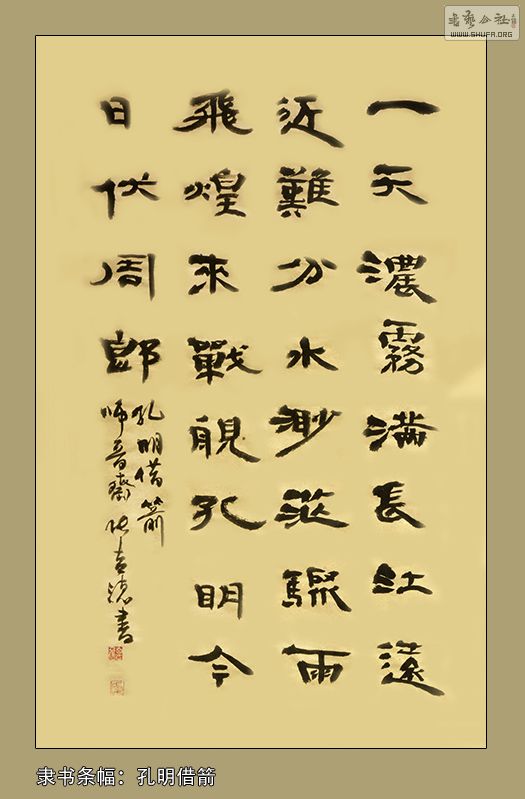 書藝公社
WWW.SHUFA.ORG
一天濃霧滿長江遠
近難分水渺茫驟雨
飛煌來戰舰孔明今
日伏周郎
孔明借箭
書
隶书条幅：孔明借箭